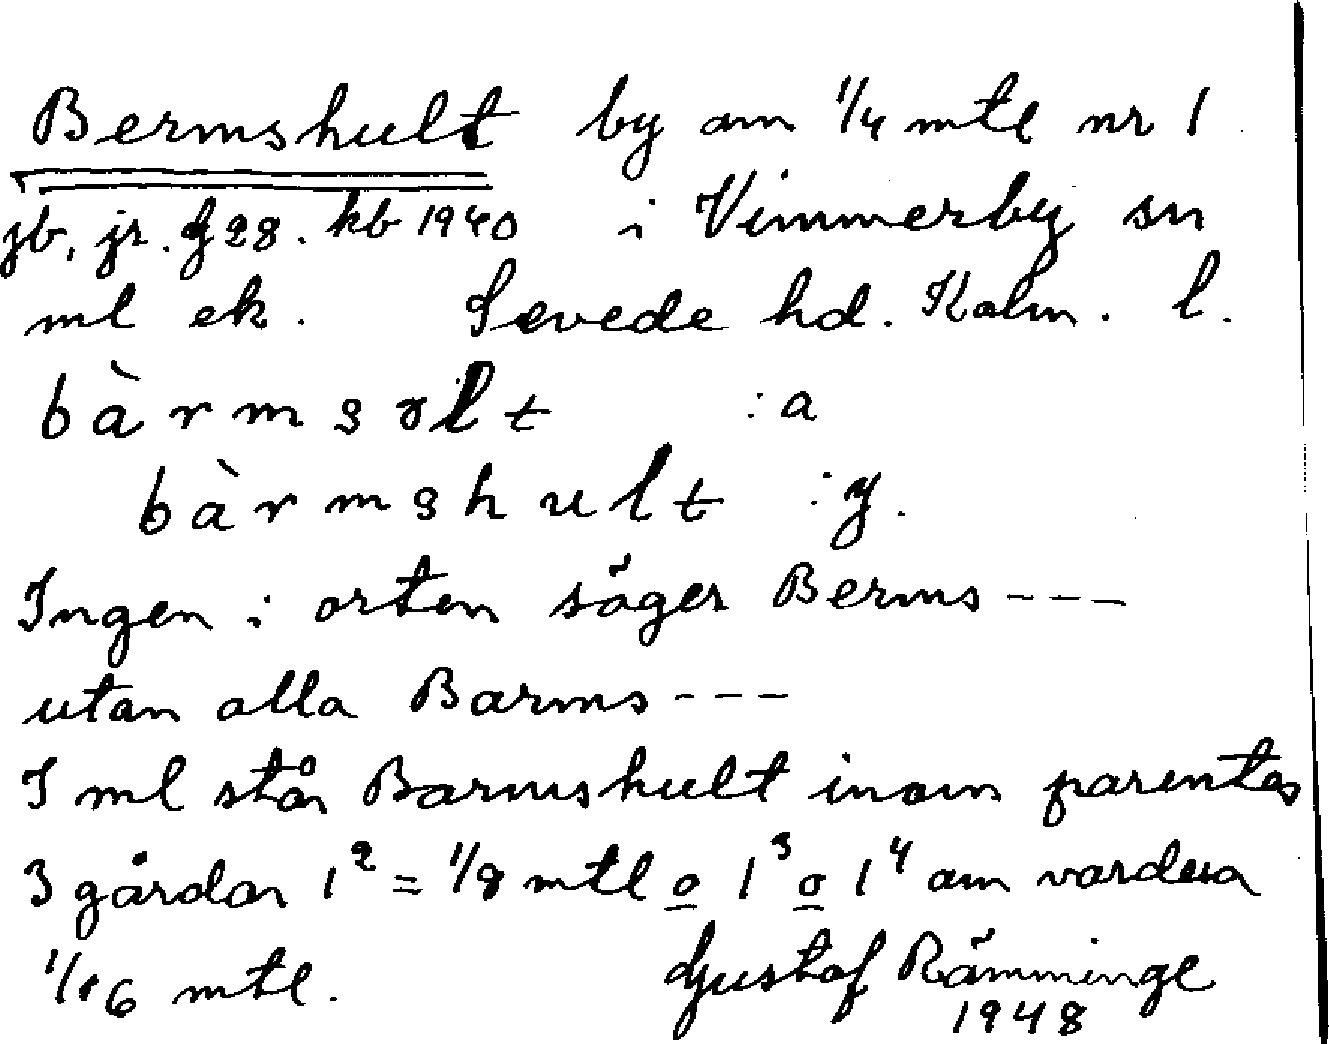 Bermshult by om 1/4 mtl nr 1
jb, jr. f 28. kb 1940 i Vimmerby sn
ml ek. Sevede hd. Kalm. l.
bàrmsolt :a
bàrmshult :y.
Ingen i orten säger Berms---
utan alla Barms---
I ml står Barmshult inom parentes
3 gårdar 1² = 1/8 mtl o 1³ o 1⁴ om vardera
1/16 mtl. Gustaf Rämminge
1948